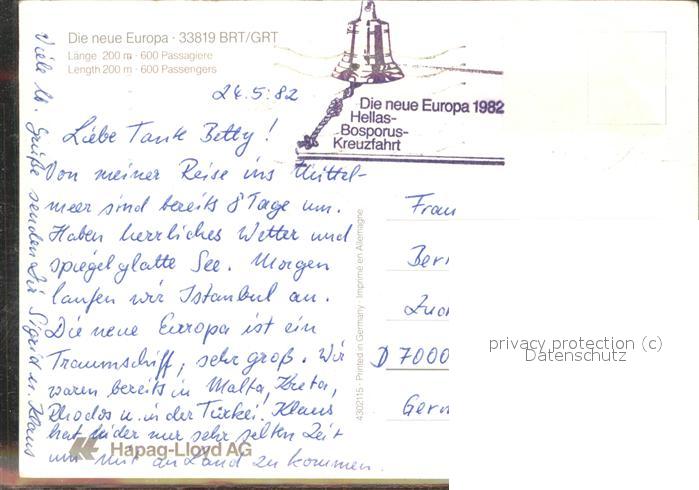 Die neue Europa · 33819 BRT/GRT
Länge 200 m · 600 Passagiere
Length 200 m · 600 Passengers
24.5.82
Die neue Europa 1982
Hellas-
Bosporus-
Kreuzfahrt
Liebe Tante Betty!
Von meiner Reise ins Mittel-
meer sind bereits 8 Tage um.
Haben herrliches Wetter und
spiegelglatte See. Morgen
laufen wir Istanbul an.
Die neue Europa ist ein
Traumschiff, sehr groß. Wir
waren bereits in Malta, Kreta,
Rhodos u. in der Türkei. Klaus
hat leider nur sehr selten Zeit
um mit an Land zu kommen.
Viele lb. Grüße senden Dir Sigrid u. Klaus
Hapag-Lloyd AG
4302115 · Printed in Germany · Imprimé en Allemagne
Frau
D 7000
privacy protection (c)
Datenschutz